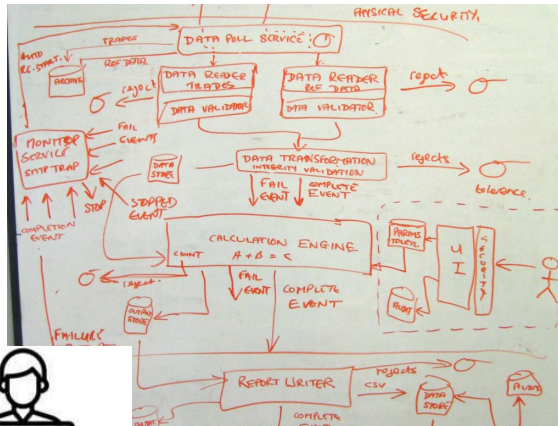 PHYSICAL SECURITY.
TRADES
DATA POLL SERVICE
AUTO
RE-START.
REF DATA
ARCHIVE
DATA READER
TRADES
DATA VALIDATOR
DATA READER
REF DATA
DATA VALIDATOR
reject
reject
MONITOR
SERVICE
SMTP TRAP
FAIL
EVENTS
DATA
STORE
DATA TRANSFORMATION
INTEGRITY VALIDATION
rejects
tolerence.
FAIL
EVENT
COMPLETE
EVENT
STOP
STOPPED
EVENT
COMPLETION
EVENT
CALCULATION ENGINE
A + B = C
COUNT
PARMS
TOLER.
UI
SECURITY
AUDIT
reject.
FAIL
EVENT
COMPLETE
EVENT
OUTPUT
STORE
FAILURE
REPORT WRITER
rejects
CSV
DATA
STORE
AUDIT
COMPLETE